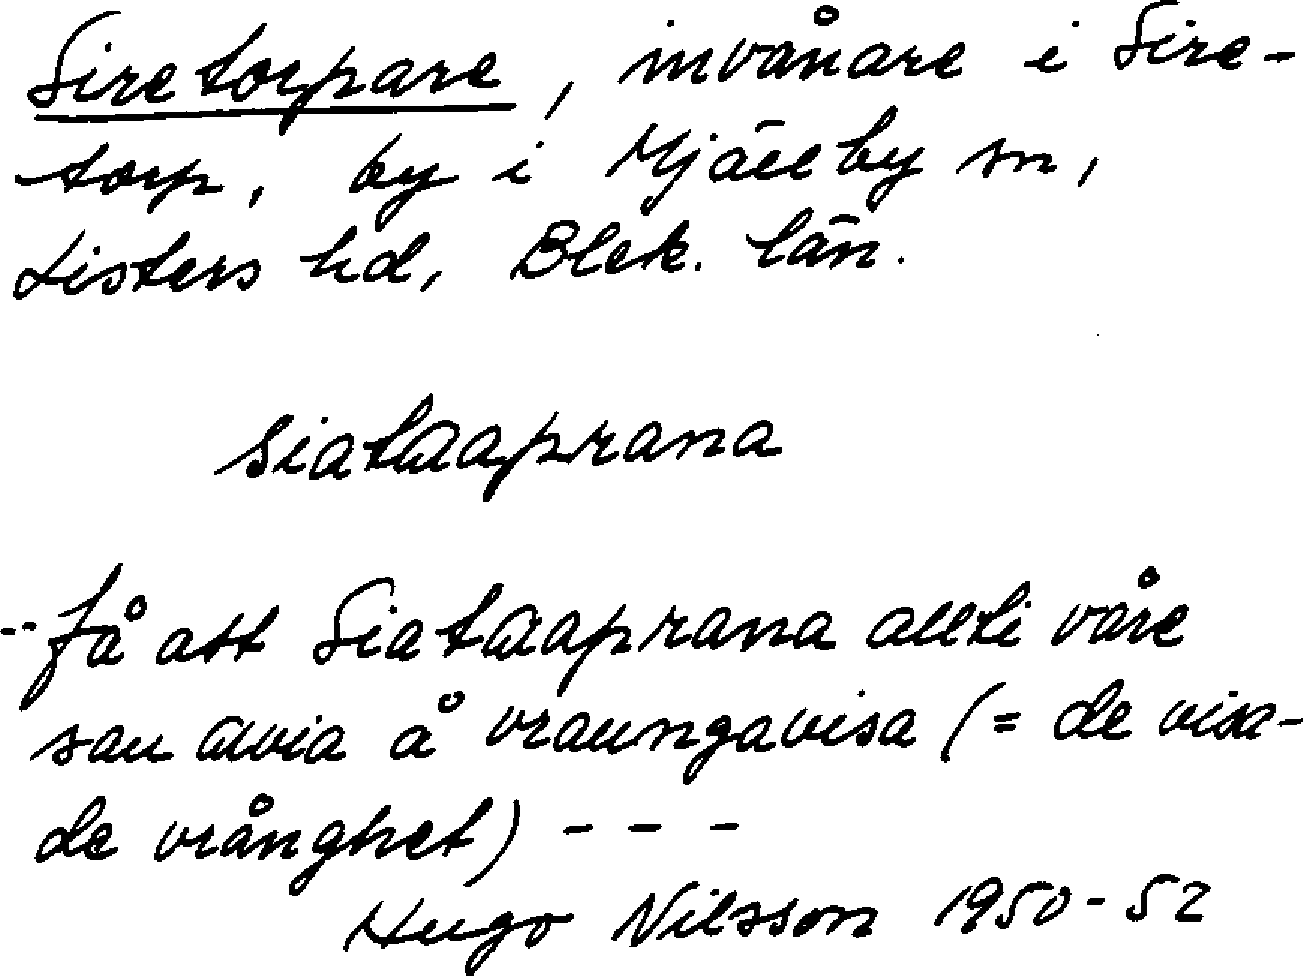 Siretorpare, invånare i Sire-
torp, by i Mjällby sn,
Listers hd, Blek. län.
siataaprana
--få att Siataaprana allti våre
sau avia å vraungavisa (= de visa-
de vrånghet) - - -
Hugo Nilsson 1950-52